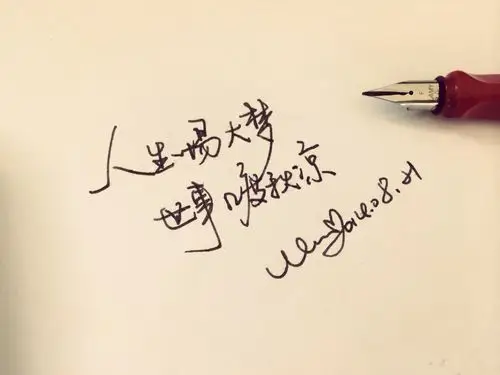 人生一场大梦
世事几度秋凉
2014.08.21